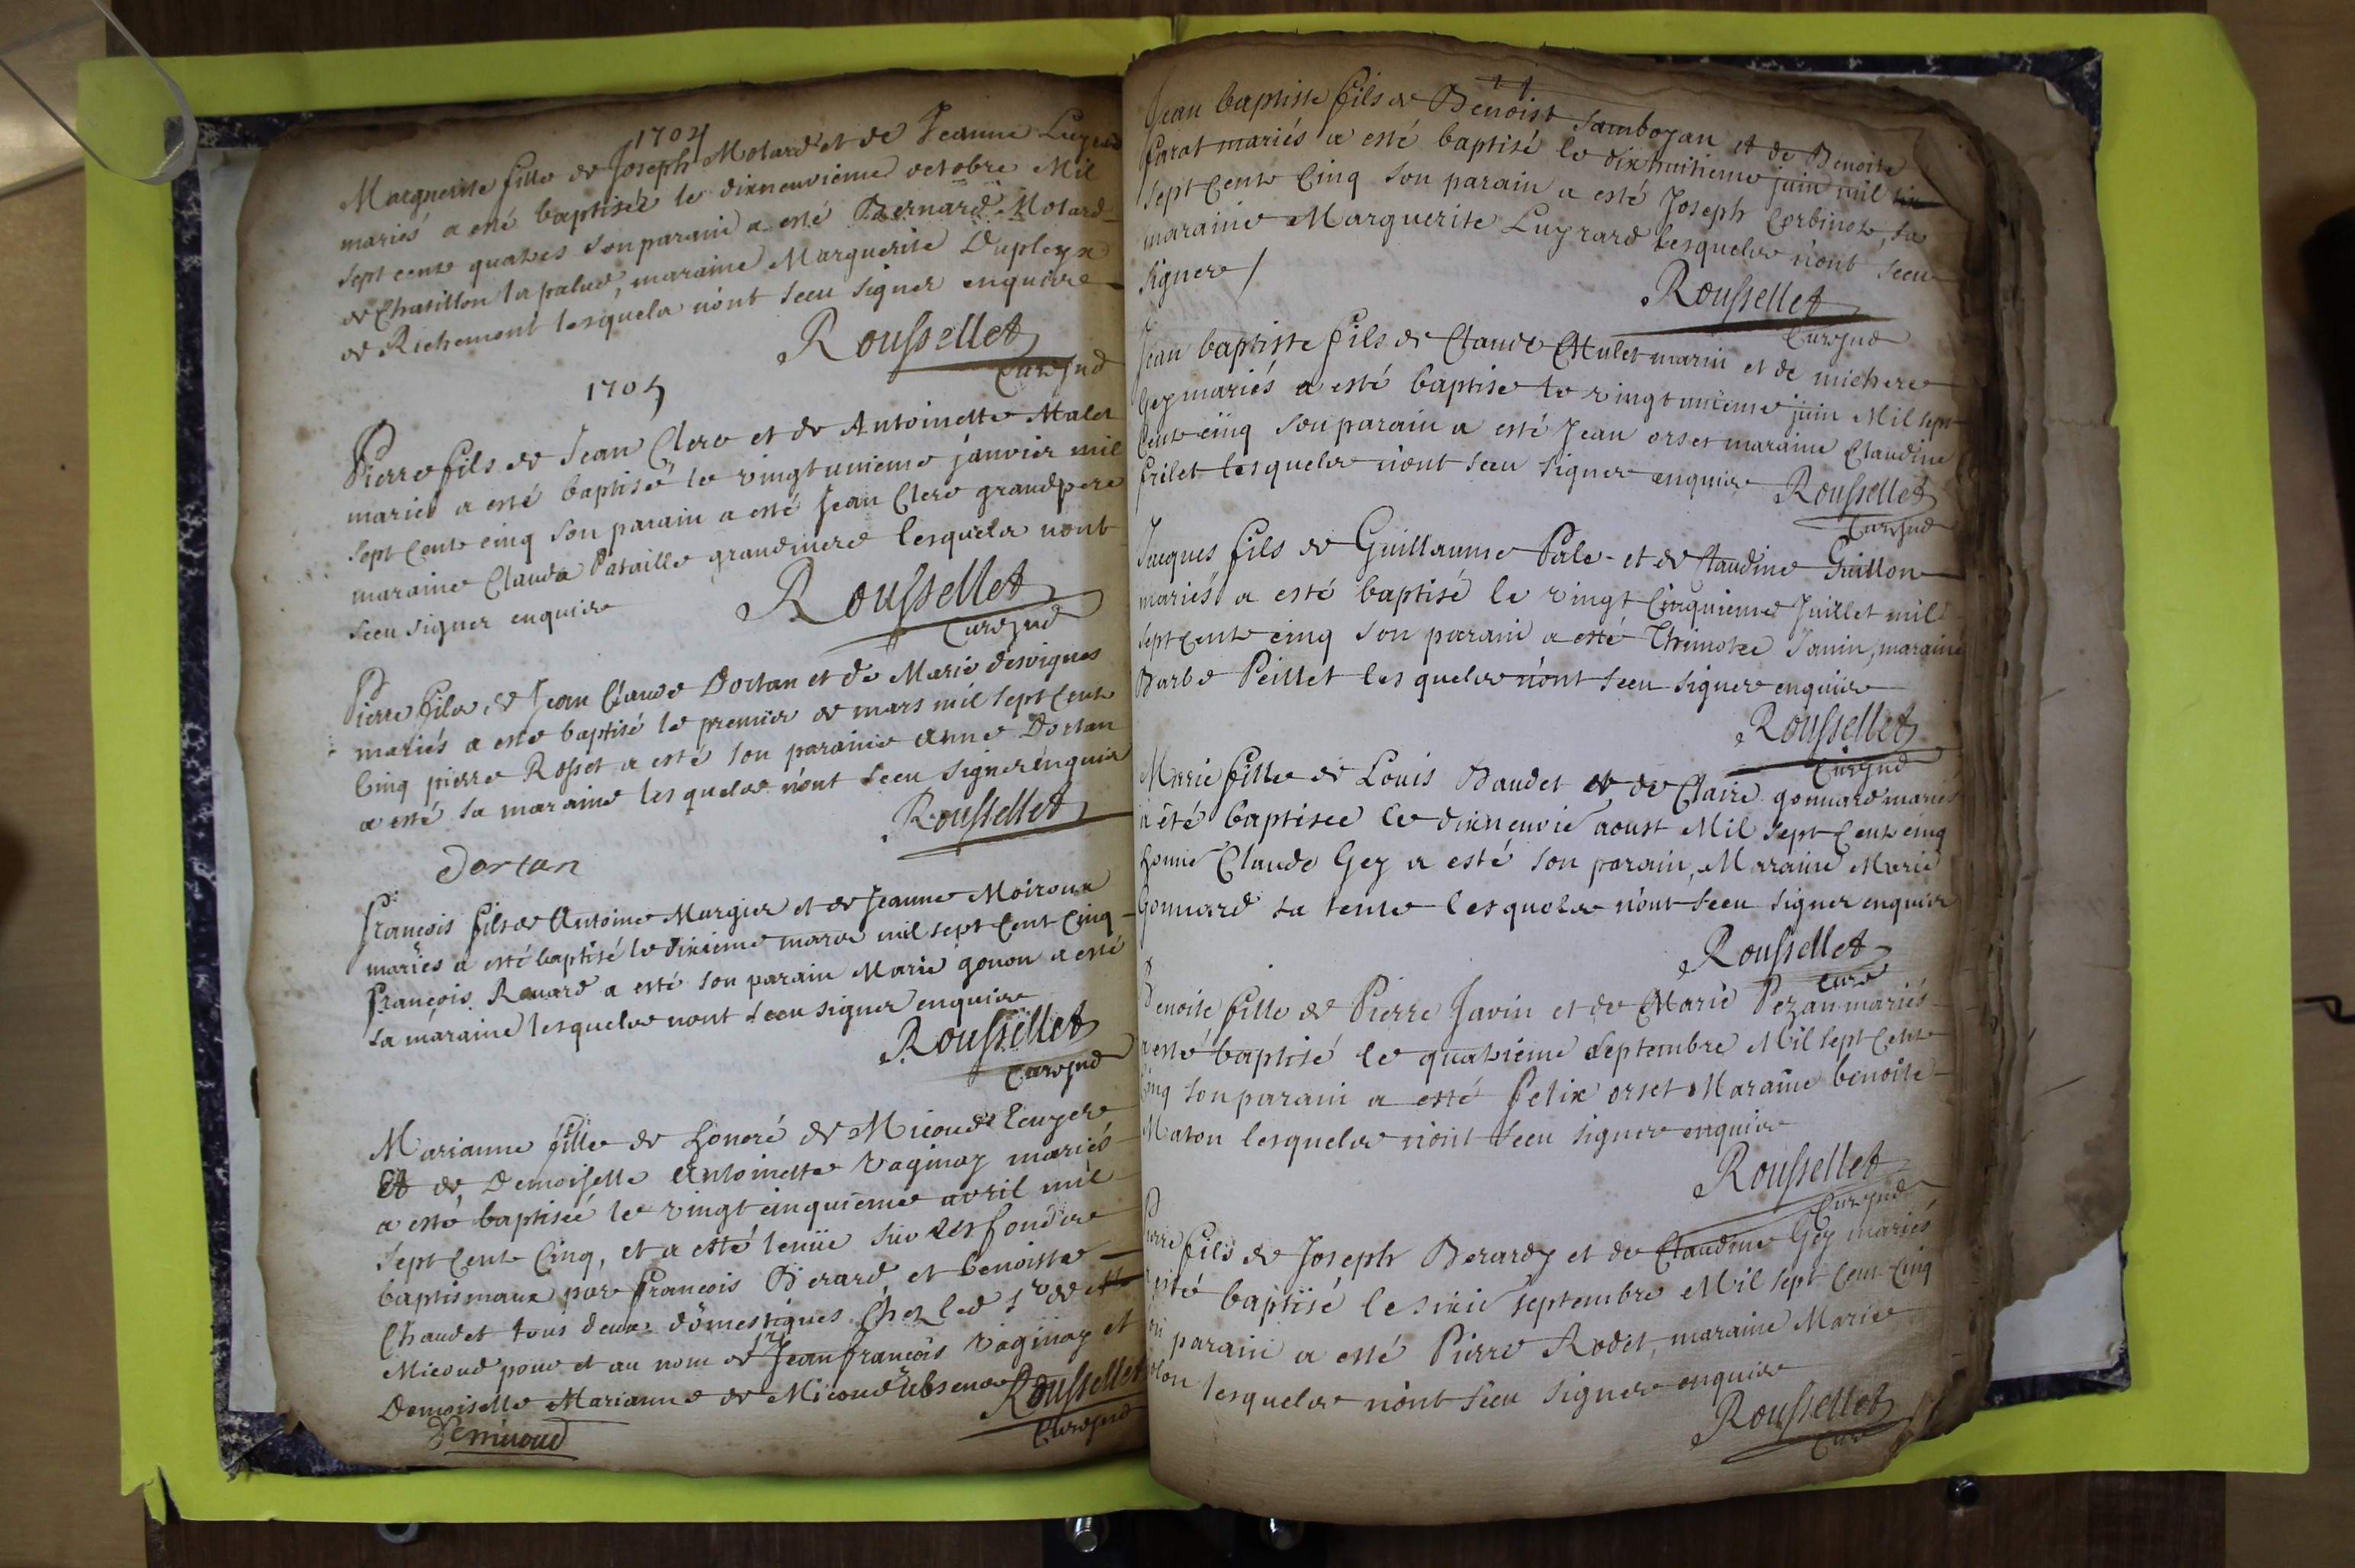 1704
Marguerite fille de Joseph Molard et de Jeanne
mariés a esté baptisée le dixneuvieme octobre Mil
sept cents quatres son parain a esté Bernard Molard
de Chatillon la palud, maraine Marguerite Dupleyx
de Richemont lesquels n'ont sceu signer enquire
Rousselet
Curé
1705
Pierre fils de Jean Clerc et de Antoinette Malet
mariés a esté baptisé le vingtunieme janvier mil
sept cents cinq son parain a esté Jean Clerc grandpere
maraine Clauda Bataille grandmere lesquels nont
sceu signer enquire
Roussellet
Curé
Pierre fils de Jean Claude Dortan et de Marie desvignes
mariés a este baptisé le premier de mars mil sept cents
Cinq pierre Rosset a esté son paraine anne Dortan
a esté sa maraine lesquels n'ont sceu signer enquis
Roussellet
Dortan
François fils de Antoine Murgier et de Jeanne Moiroux
mariés a esté baptisé le dixieme mars mil sept cent cinq
François Renard a esté son parain Marie gonon a esté
sa maraine lesquels nont sceu signer enquire
Roussellet
Curé
Marianne fille de honoré de Micoud
Et de Demoiselle Antoinette Vaginay mariés
a esté baptisée le vingt cinquieme avril mil
sept cents Cinq, et a esté tenüe sur les fonds
baptismaux par François Berard et benoiste
Chaudet tous deux domestiques chez led sr de
Micoud pour et au nom de sr Jean françois Vaginay et
Demoiselle Marianne de Micoud absens
Roussellet
Demicoud
Curé
Jean baptiste fils de Benoist Jamboyan et de Benoite
farat mariés a esté baptisé le dixhuitieme juin mil
sept Cents Cinq son parain a esté Joseph Corbinet, sa
maraine Marguerite Luyrard lesquels n'ont sceu
signer /
Roussellet
Curé
Jean baptiste fils de Claude Mulet marin et de
Gey mariés a esté baptisé le vingtunieme juin Mil sept
Cents cinq son parain a esté Jean orset maraine Claudine
frilet lesquels n'ont sceu signer enquire
Roussellet
Curé
Jacques fils de Guillaume Pale et de Claudine Guillon
mariés a esté baptisé le vingt Cinquieme Juillet mil
sept cents cinq son parain a esté Janin, maraine
Barbe Peillet lesquels n'ont sceu signer enquire
Roussellet
Curé
Marie fille de Louis Baudet et de Claire gonnard mariés
a été baptisee le dixneuvie aoust Mil sept cents cinq
Claude Gey a esté son parain, Maraine Marie
Gonnard sa tente lesquels n'ont sceu signer enquis
Roussellet
Curé
Benoite fille de Pierre Javin et de Marie Pezan mariés
a esté baptisé le quatrieme septembre Mil sept Cents
Cinq son parain a esté Felix orset Maraine benoite
Maton lesquels n'ont sceu signer enquire
Roussellet
Curé
Pierre fils de Joseph Berardy et de Claudine Gey mariés
esté baptisé le sixie septembre Mil sept Cent Cinq
parain a esté Pierre Rodet, maraine Marie
lesquels n'ont sceu signer enquire
Roussellet
Curé